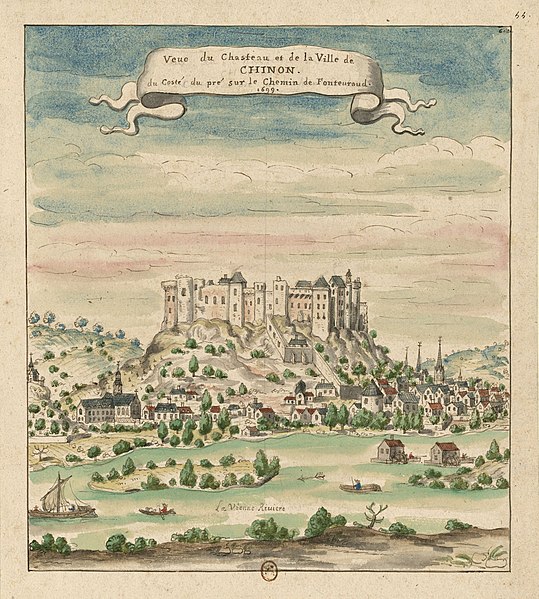 44.
Veuë du Chasteau et de la Ville de
CHINON.
du Costé du pré sur le Chemin de Fonteuraud.
1699.
La Vienne Riuiere